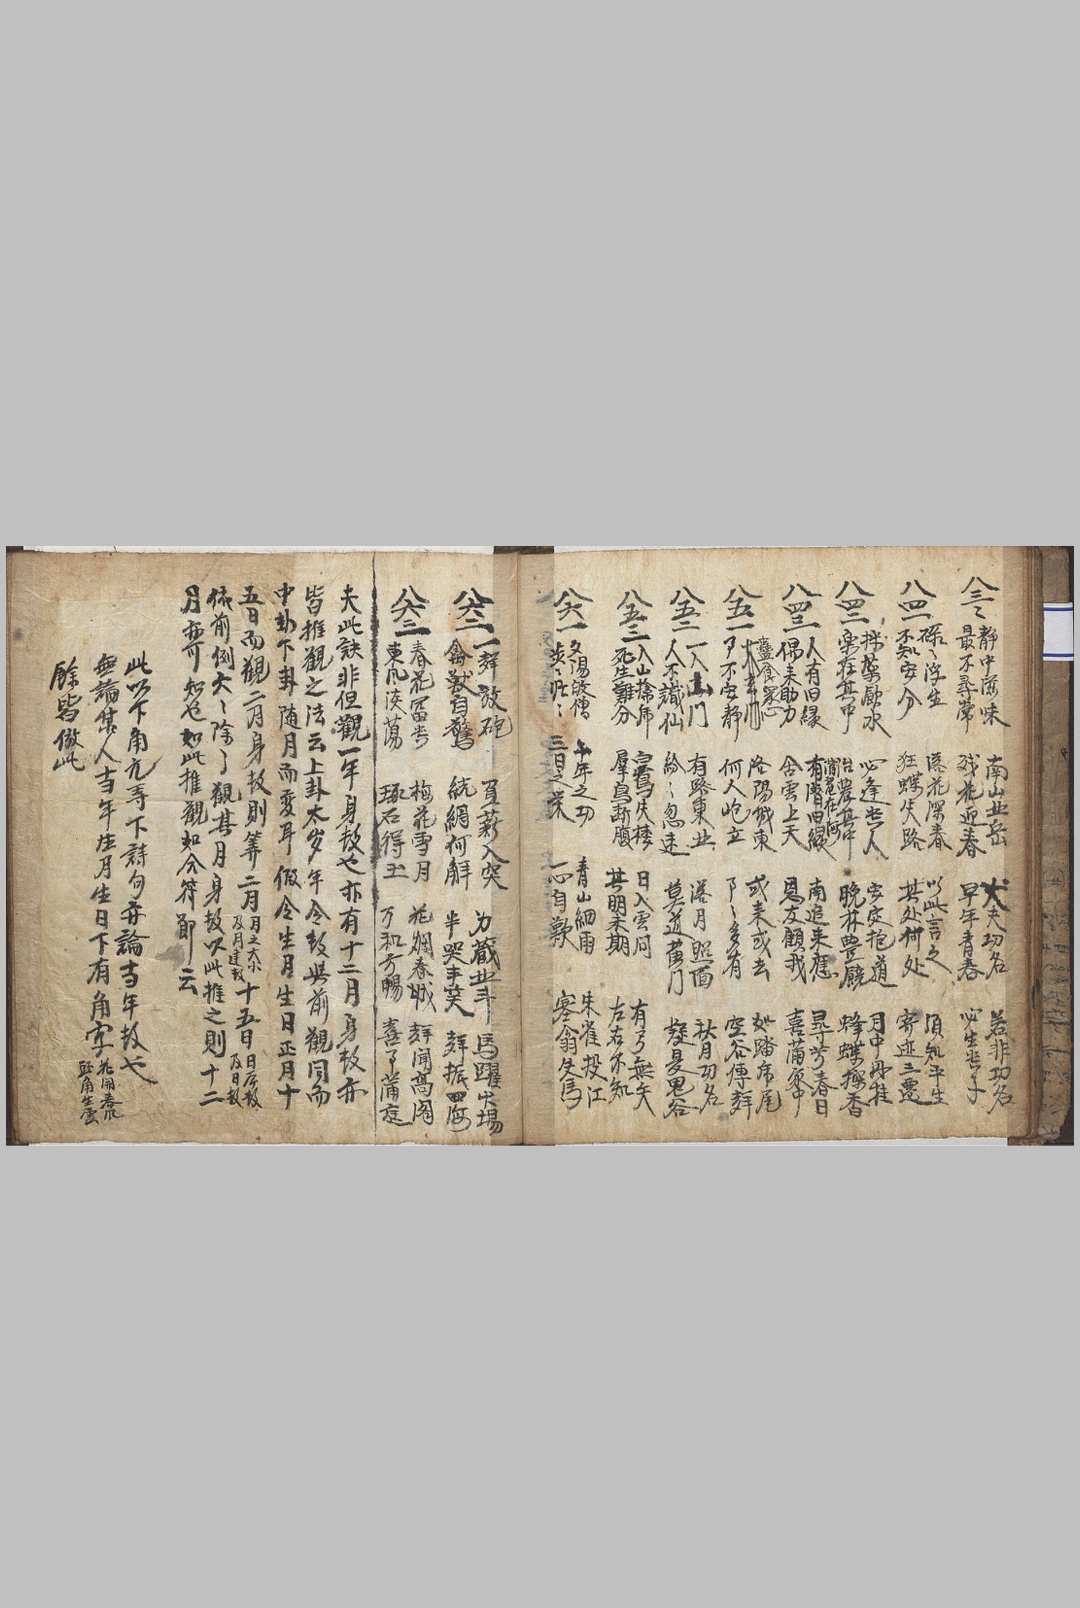 八三三
静中滋味 南山北岳 大夫功名 若非功名
最不尋常 残花迎春 早年青春 必生貴子
八四一
碌々浮生 落花深春 以此言之 須知平生
不知安分 狂蝶失路 其处何处 寄迹三遷
八四二
採薬飲水 必逢貴人 安定抱道 月中丹桂
楽在其中 治農其中 晩林豊饒 蜂蝶探香
八四三
人有旧縁 有階旧縁 南追来應 昴兮春日
偶来助力 含雲上天 恩友顧我 喜蒲家中
八五一
洛陽城東 或来或去 如踏虎尾
不安静 何人屹立 多有 空谷傳聲
八五二
一入山門 有路東北 落月照面 秋月功名
人不識仙 紛々忽迷 莫道蓬門 發憂鬼谷
八五三
入山擒虎 白鷺失棲 日入雲间 有弓無矢
死生難分 羣鳥斷腹 其明未期 左右不知
八六一
夕陽歸僧 十年之功 青山細雨 朱雀投江
茫々 三日之栄 一心自歎 塞翁失馬
八六二
一聲放砲 負薪入突 力藏北斗 馬躍火場
禽獸自驚 統網何解 半哭半笑 聲振四海
八六三
春花富貴 梅花雪月 花爛春城 聲聞高阁
東風淡蕩 琢石得玉 万和方暢 喜了蒲庭
夫此訣非但觀一年身数也亦有十二月身数亦
皆推觀之法云上卦太岁年令数與前觀同而
中卦下卦随月而変耳假令生月生日正月十
五日而觀二月身数則筭二月月之大小及月建数十五日日辰数及日数
依前例六々除了觀其月身数以此推之則十二
月亦可知也如此推觀如合符節云
此以下角亢等下詩句弄論吉年数也
無論某人吉年生月生日下有角字花開春風
餘皆倣此